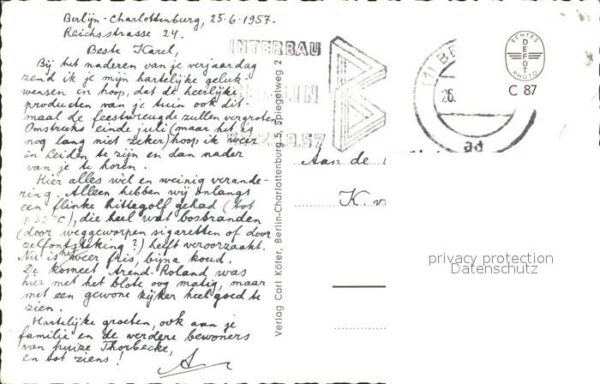 Berlijn-Charlottenburg, 25-6-1957.
Reichsstrasse 24.
Beste Karel,
Bij het naderen van je verjaardag
zend ik je mijn hartelijke geluk-
wensen in hoop, dat de heerlijke
producten van je tuin ook dit-
maal de feestvreugde zullen vergroten.
Omstreeks einde juli (maar het is
nog lang niet zeker) hoop ik weer
in Leiden te zijn en dan nader
van je te horen.
Hier alles wel en weinig verande-
ring. Alleen hebben wij onlangs
een flinke hittegolf gehad (tot
+32°C), die heel wat bosbranden
(door weggeworpen sigaretten of door
zelfontsteking?) heeft veroorzaakt.
Nu is het weer fris, bijna koud.
De komeet Arend-Roland was
hier met het blote oog matig, maar
met een gewone kijker heel goed te
zien.
Hartelijke groeten, ook aan je
familie en de verdere bewoners
van huize Thorbecke,
en tot ziens!
A
INTERBAU
BERLIN
57
Verlag Carl Köfer, Berlin-Charlottenburg 5, Spiegelweg 2
(1) BE
26.
ad
ECHTES
DEFOT
PHOTO
C 87
Aan de
K. v
privacy protection
Datenschutz